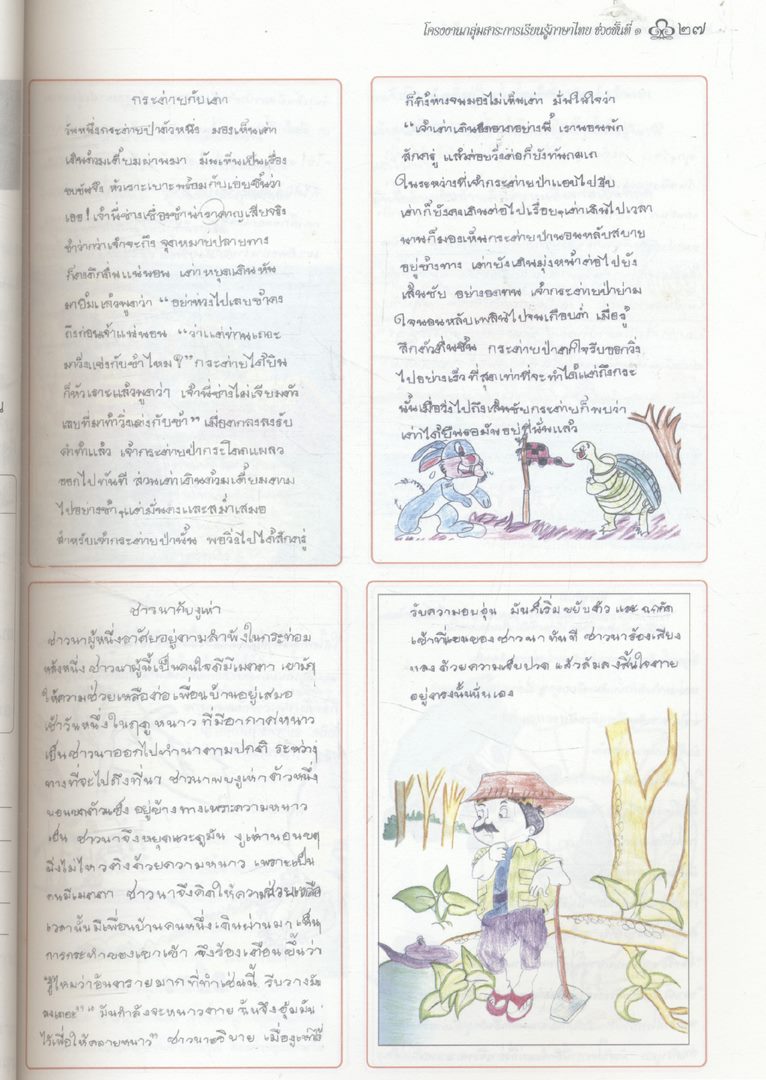 โครงงานกลุ่มสาระการเรียนรู้ภาษาไทย ช่วงชั้นที่ ๑ ๒๗
กระต่ายกับเต่า
วันหนึ่งกระต่ายป่าตัวหนึ่ง มองเห็นเต่า
เดินต้วมเตี้ยมผ่านมา มันเห็นเป็นเรื่อง
ขบขันจึง หัวเราะเยาะพร้อมกับเอ่ยขึ้นว่า
เออ! เจ้านี่ช่างเชื่องช้าน่ารำคาญเสียจริง
ช้ากว่าเจ้าจะถึง จุดหมายปลายทาง
ก็คงดึกดื่นแน่นอน เต่าหยุดเดินหัน
มายิ้มแล้วพูดว่า “อย่าห่วงไปเลยข้าคง
ถึงก่อนเจ้าแน่นอน “ว่าแต่ท่านเถอะ
มาวิ่งแข่งกับข้าไหม?” กระต่ายได้ยิน
ก็หัวเราะแล้วพูดว่า เจ้านี่ช่างไม่เจียมตัว
เลยที่มาท้าวิ่งแข่งกับข้า” เมื่อตกลงรับ
คำท้าแล้ว เจ้ากระต่ายป่ากระโดดแผลว
ออกไปทันที ส่วนเต่าเดินต้วมเตี้ยมตาม
ไปอย่างช้าๆแต่มั่นคงและสม่ำเสมอ
สำหรับเจ้ากระต่ายป่านั้น พอวิ่งไปได้สักครู่
ก็ทิ้งห่างจนมองไม่เห็นเต่า มั่นใส่ใจว่า
“เจ้าเต่าเดินอืดอาดอย่างนี้ เรานอนพัก
สักครู่ แล้วค่อยวิ่งต่อก็ยังทันถมเถ
ในระหว่างที่เจ้ากระต่ายป่าแอบไปงีบ
เต่าก็ยังคงเดินต่อไปเรื่อยๆเต่าเดินไปเวลา
นานก็มองเห็นกระต่ายป่านอนหลับสบาย
อยู่ข้างทาง เต่ายังเดินมุ่งหน้าต่อไปยัง
เส้นชัย อย่างอดทน เจ้ากระต่ายป่าย่าม
ใจนอนหลับเพลินไปจนเกือบค่ำ เมื่อรู้
สึกตัวตื่นขึ้น กระต่ายป่าตกใจรีบออกวิ่ง
ไปอย่างเร็วที่สุดเท่าที่จะทำได้แต่ถึงกระ
นั้นเมื่อวิ่งไปถึงเส้นชัยกระต่ายก็พบว่า
เต่าได้ยืนรอมันอยู่ที่นั่นแล้ว
ชาวนากับงูเห่า
ชาวนาผู้หนึ่งอาศัยอยู่ตามลำพังในกระท่อม
หลังหนึ่ง ชาวนาผู้นี้เป็นคนใจดีมีเมตตา เขามัก
ให้ความช่วยเหลือต่อเพื่อนบ้านอยู่เสมอ
เช้าวันหนึ่งในฤดูหนาว ที่มีอากาศหนาว
เย็นชาวนาออกไปทำนาตามปกติ ระหว่าง
ทางที่จะไปถึงที่นา ชาวนาพบงูเห่าตัวหนึ่ง
นอนขดตัวแข็ง อยู่ข้างทางเพราะความหนาว
เย็น ชาวนาจึงหยุดแวะดูมัน งูเห่านอนขด
นิ่งไม่ไหวติงด้วยความหนาว เพราะเป็น
คนมีเมตตา ชาวนาจึงคิดให้ความช่วยเหลือ
เวลานั้นมีเพื่อนบ้านคนหนึ่งเดินผ่านมา เห็น
การกระทำของเขาเข้า จึงร้องเตือนขึ้นว่า
“รู้ไหมว่าอันตรายมากที่ทำเช่นนี้ รีบวางมัน
ลงเถอะ” “มันกำลังจะหนาวตาย ฉันจึงอุ้มมัน
ไว้เพื่อให้คลายหนาว” ชาวนาอธิบาย เมื่องูเห่าได้
รับความอบอุ่น มันก็เริ่มขยับตัว และฉกกัด
เข้าที่แขนของชาวนาทันที ชาวนาร้องเสียง
หลง ด้วยความเจ็บปวด แล้วล้มลงสิ้นใจตาย
อยู่ตรงนั้นนั่นเอง